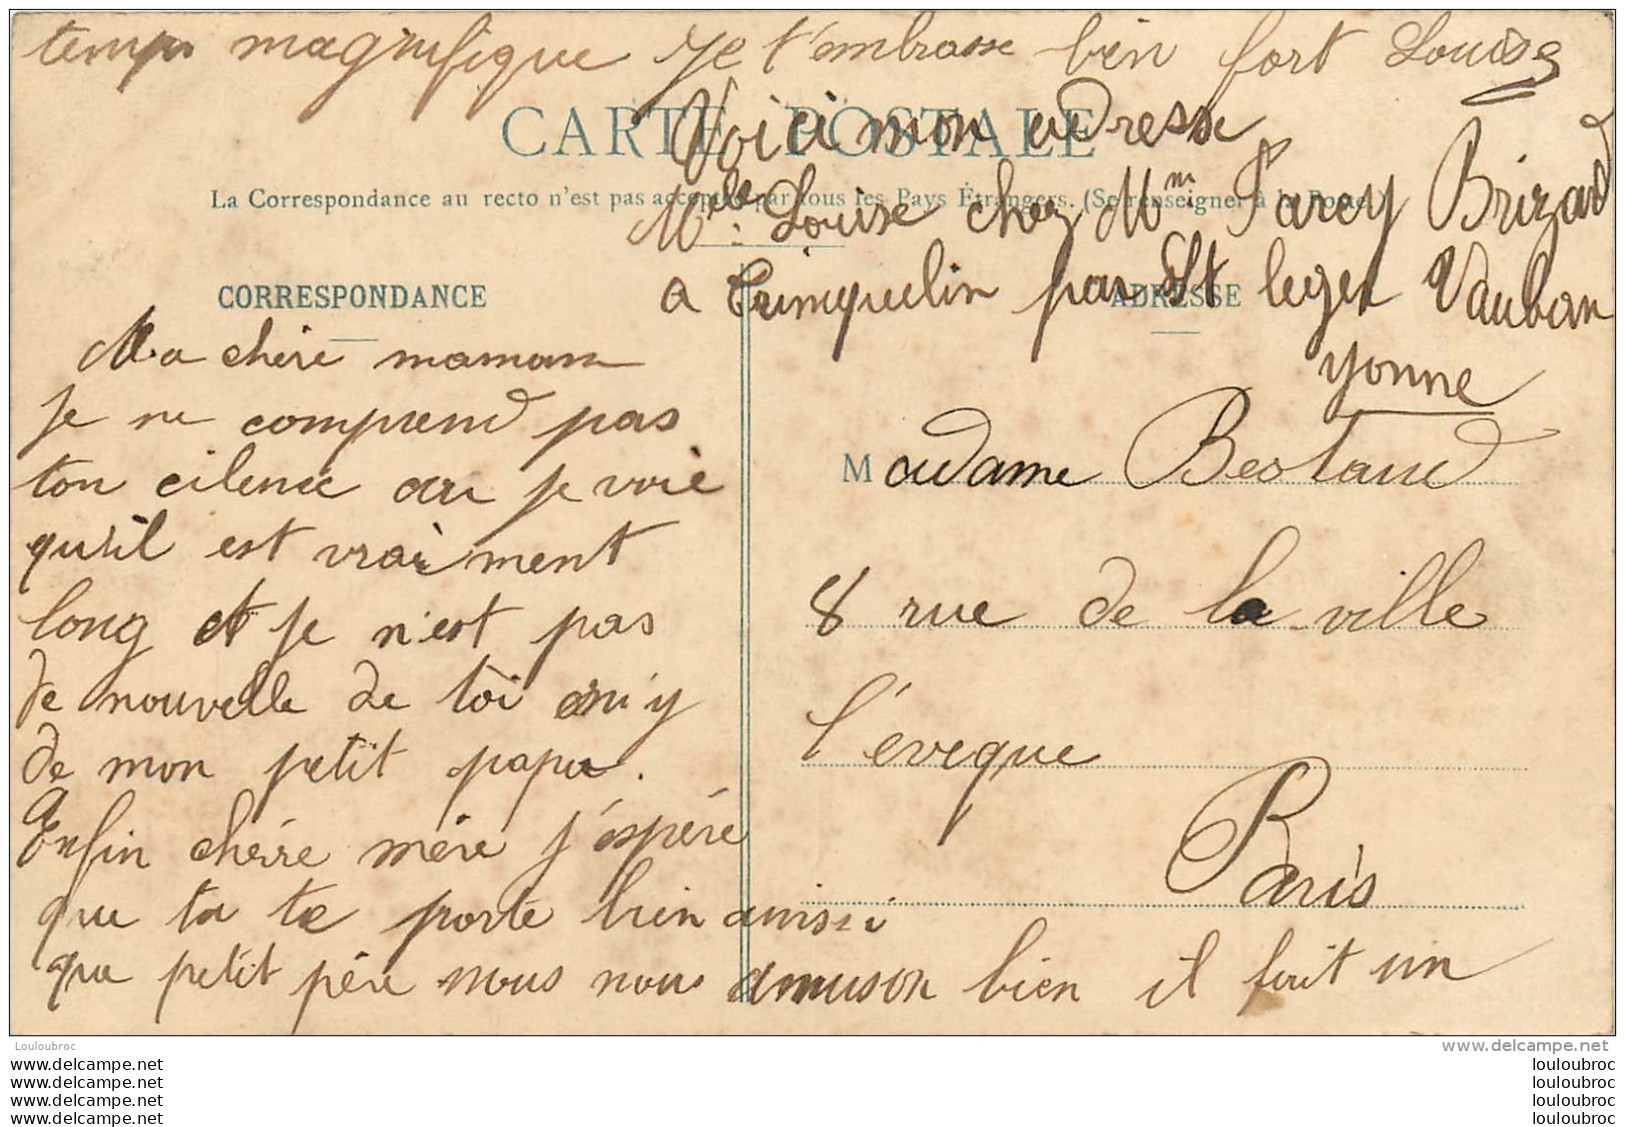 temps magnifique Je t'embrasse bien fort Louise
CARTE POSTALE
Voici mon adresse
La Correspondance au recto n'est pas acceptée par tous les Pays Étrangers. (Se renseigner à la Poste.)
Mlle Louise chez Mm Farcy Brizard
a Trinquelin par St leger Vauban
Yonne
CORRESPONDANCE
ADRESSE
Ma chère maman
Je ne comprend pas
ton cilence car je voie
qu'il est vraiment
long et je n'est pas
de nouvelle de toi ni y
de mon petit papa.
Enfin chérre mère j'éspére
que ta te porte bien aussi
que petit père nous nous amuson bien il fait un
Madame
8 rue de la ville
l'éveque
Paris
Louloubroc
www.delcampe.net
www.delcampe.net
www.delcampe.net
www.delcampe.net
www.delcampe.net
louloubroc
louloubroc
louloubroc
louloubroc